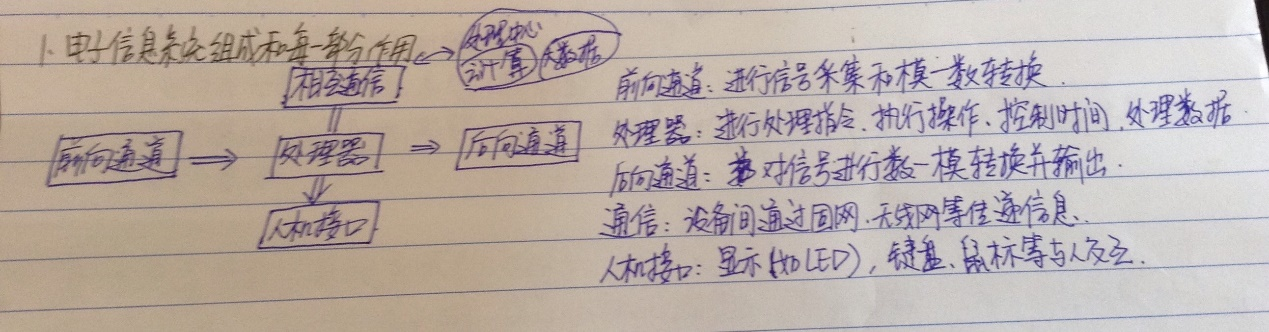 1. 电子信息系统组成和每一部分作用
处理中心
云计算 大数据
相互通信
前向通道 ⇒ 处理器 ⇒ 后向通道
人机接口
前向通道：进行信号采集和模-数转换.
处理器：进行处理指令、执行操作、控制时间、处理数据.
后向通道：对信号进行数-模转换并输出.
通信：设备间通过因网、无线网等传递信息.
人机接口：显示(如LED)，键盘、鼠标等与人交互.